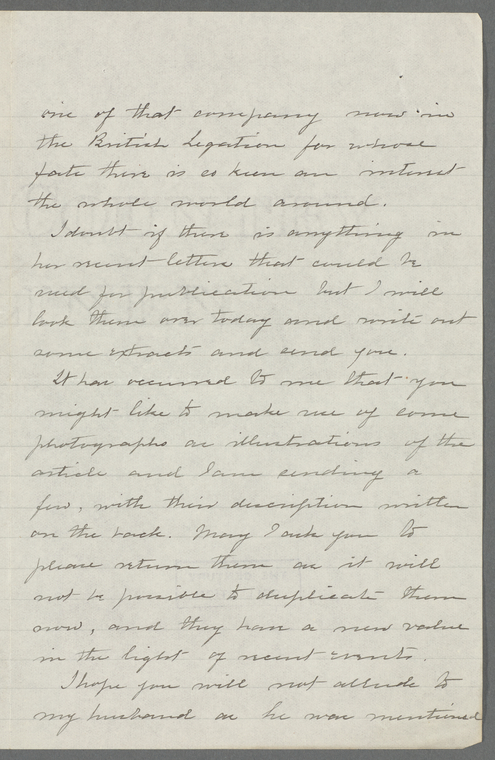 one of that company now in
the British Legation for whose
fate there is so keen an interest
the whole world around.
I doubt if there is anything in
her recent letters that could be
used for publication but I will
look them over today and write out
some extracts and send you.
It has occurred to me that you
might like to make use of some
photographs as illustrations of the
article and I am sending a
few, with their description written
on the back. May I ask you to
please return them as it will
not be possible to duplicate them
now, and they have a new value
in the light of recent events.
I hope you will not allude to
my husband as he was mentioned